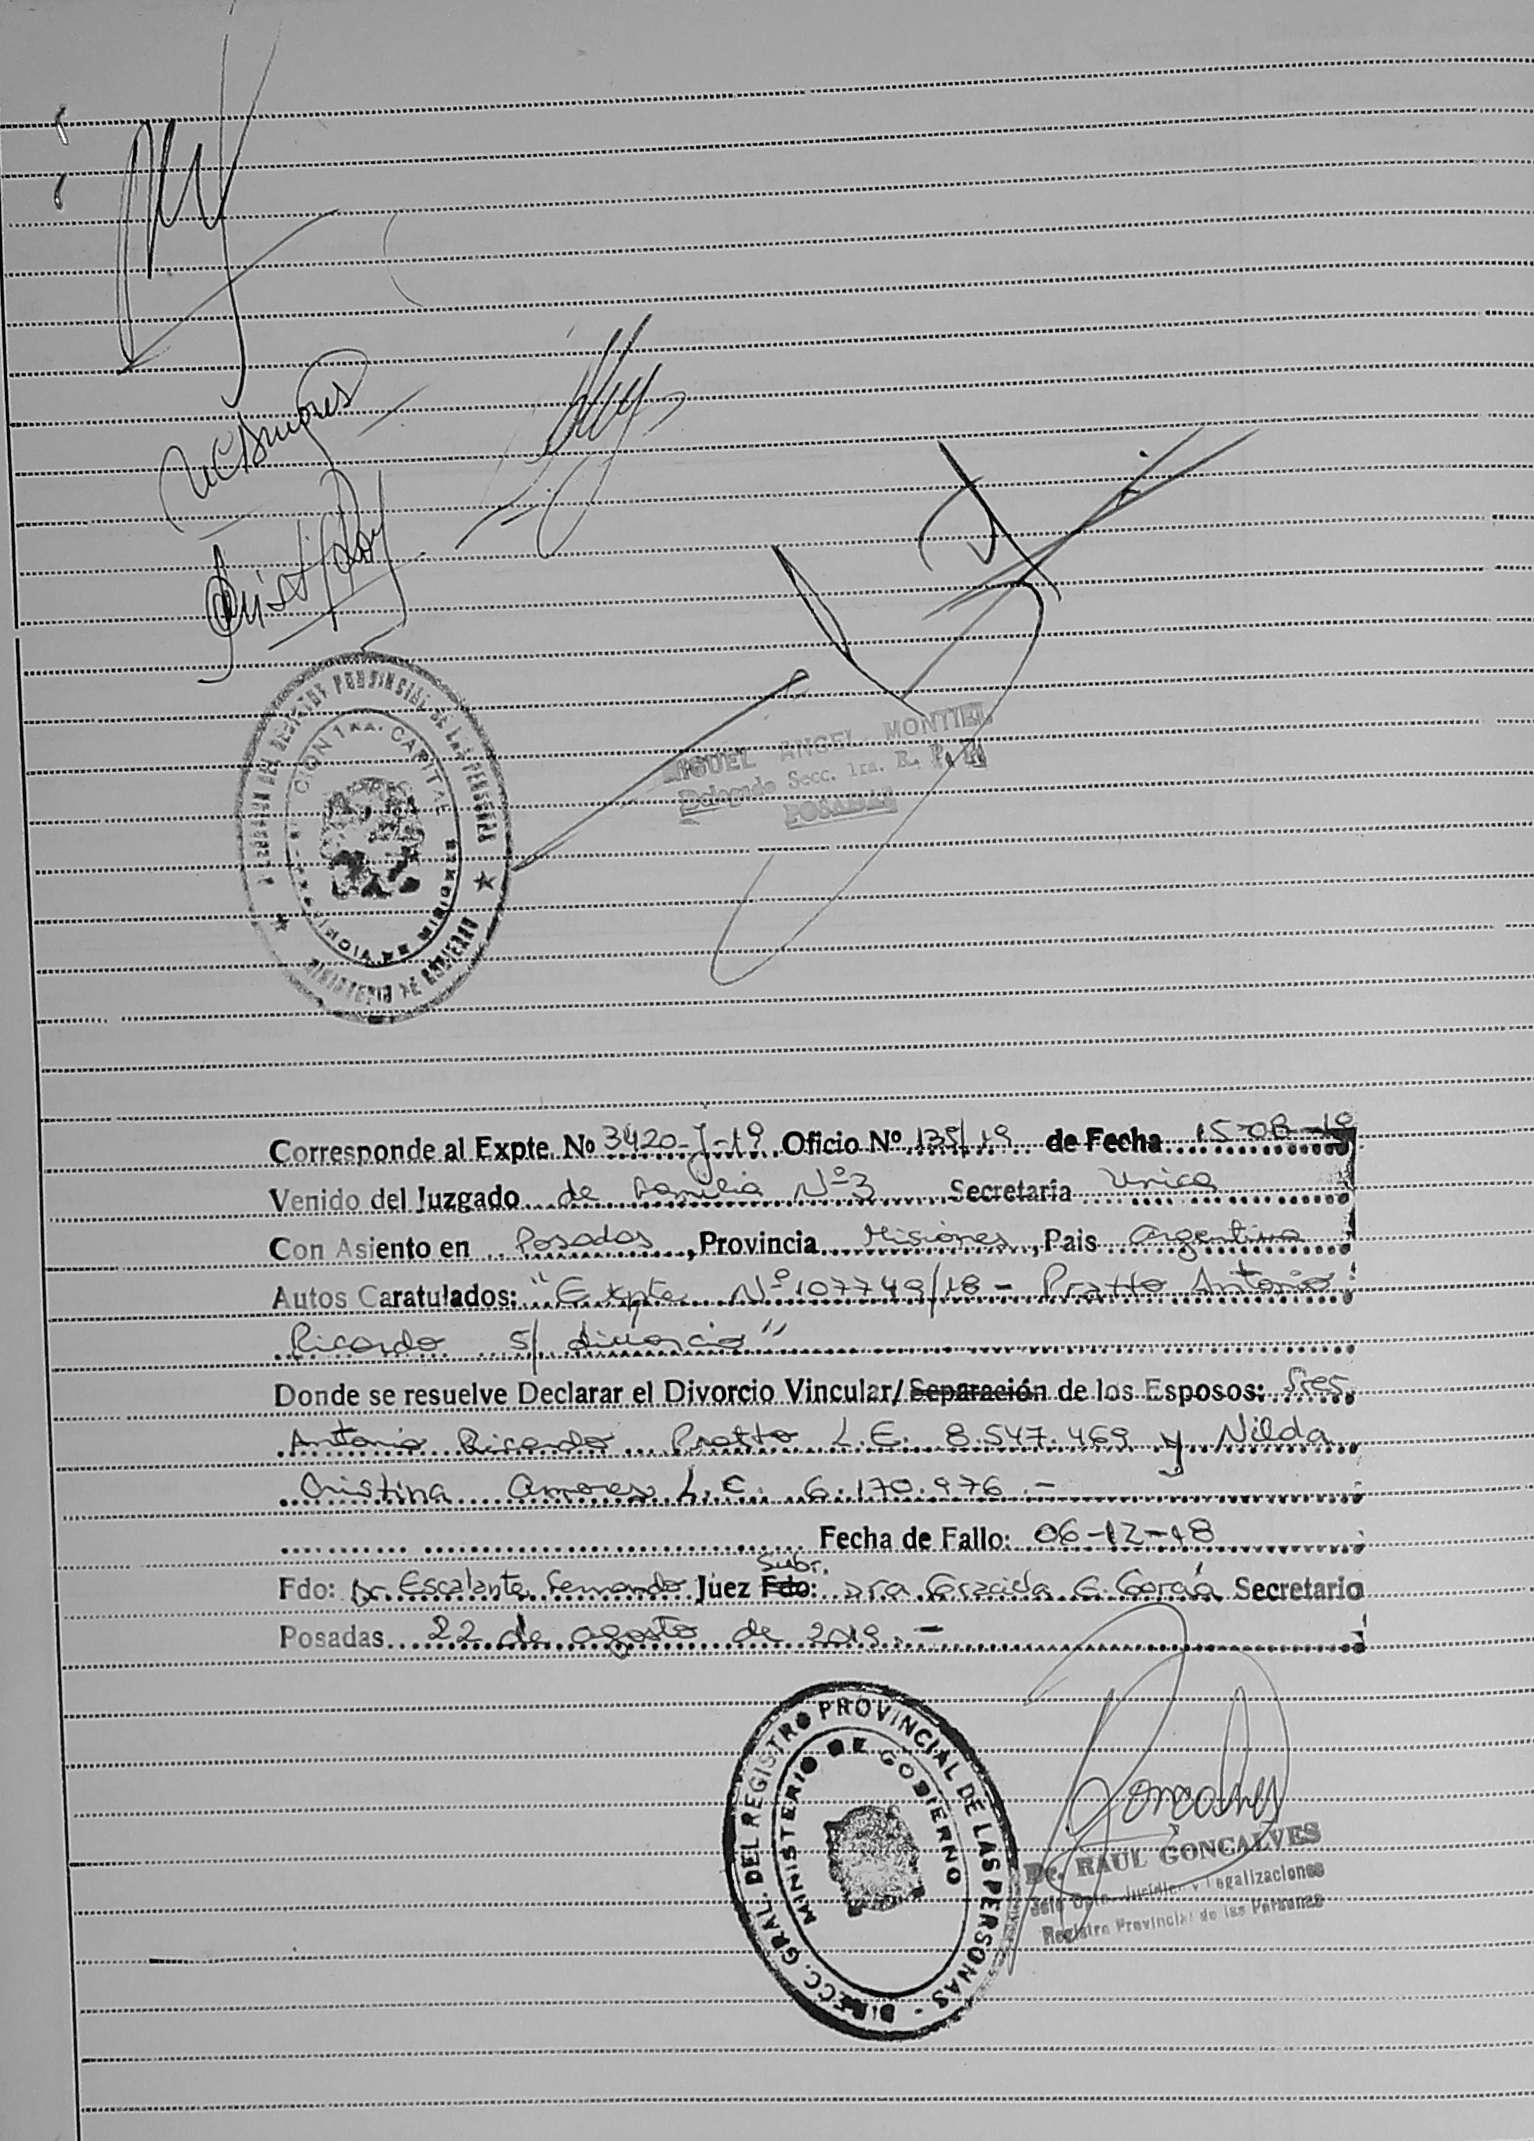 MIGUEL ANGEL MONTIEL
Delegado Secc. 1ra. R. P. P.
POSADAS
CION 1RA. CAPITAL
Corresponde al Expte. Nº 3420-J-19 Oficio Nº 139/19 de Fecha 15-08-19
Venido del Juzgado de Familia Nº 3 Secretaría Unica
Con Asiento en Posadas, Provincia Misiones, Pais Argentina
Autos Caratulados: "Expte Nº 107749/18 - Pratto Antonio
Ricardo S/ divorcio"
Donde se resuelve Declarar el Divorcio Vincular/ Separación de los Esposos: Sres.
Antonio Ricardo Pratto L.E. 8.547.469 y Nilda
Cristina Amores L.C. 6.170.976.-
Fecha de Fallo: 06-12-18
Subr.
Fdo: Dr. Escalante Fernando Juez Fdo: Dra Graciela E. García Secretario
Posadas 22 de agosto de 2019.-
DIRECC. GRAL. DEL REGISTRO PROVINCIAL DE LAS PERSONAS -
MINISTERIO DE GOBIERNO
Dr. RAUL GONCALVES
Jefe Dpto. Jurídico y Legalizaciones
Registro Provincial de las Personas